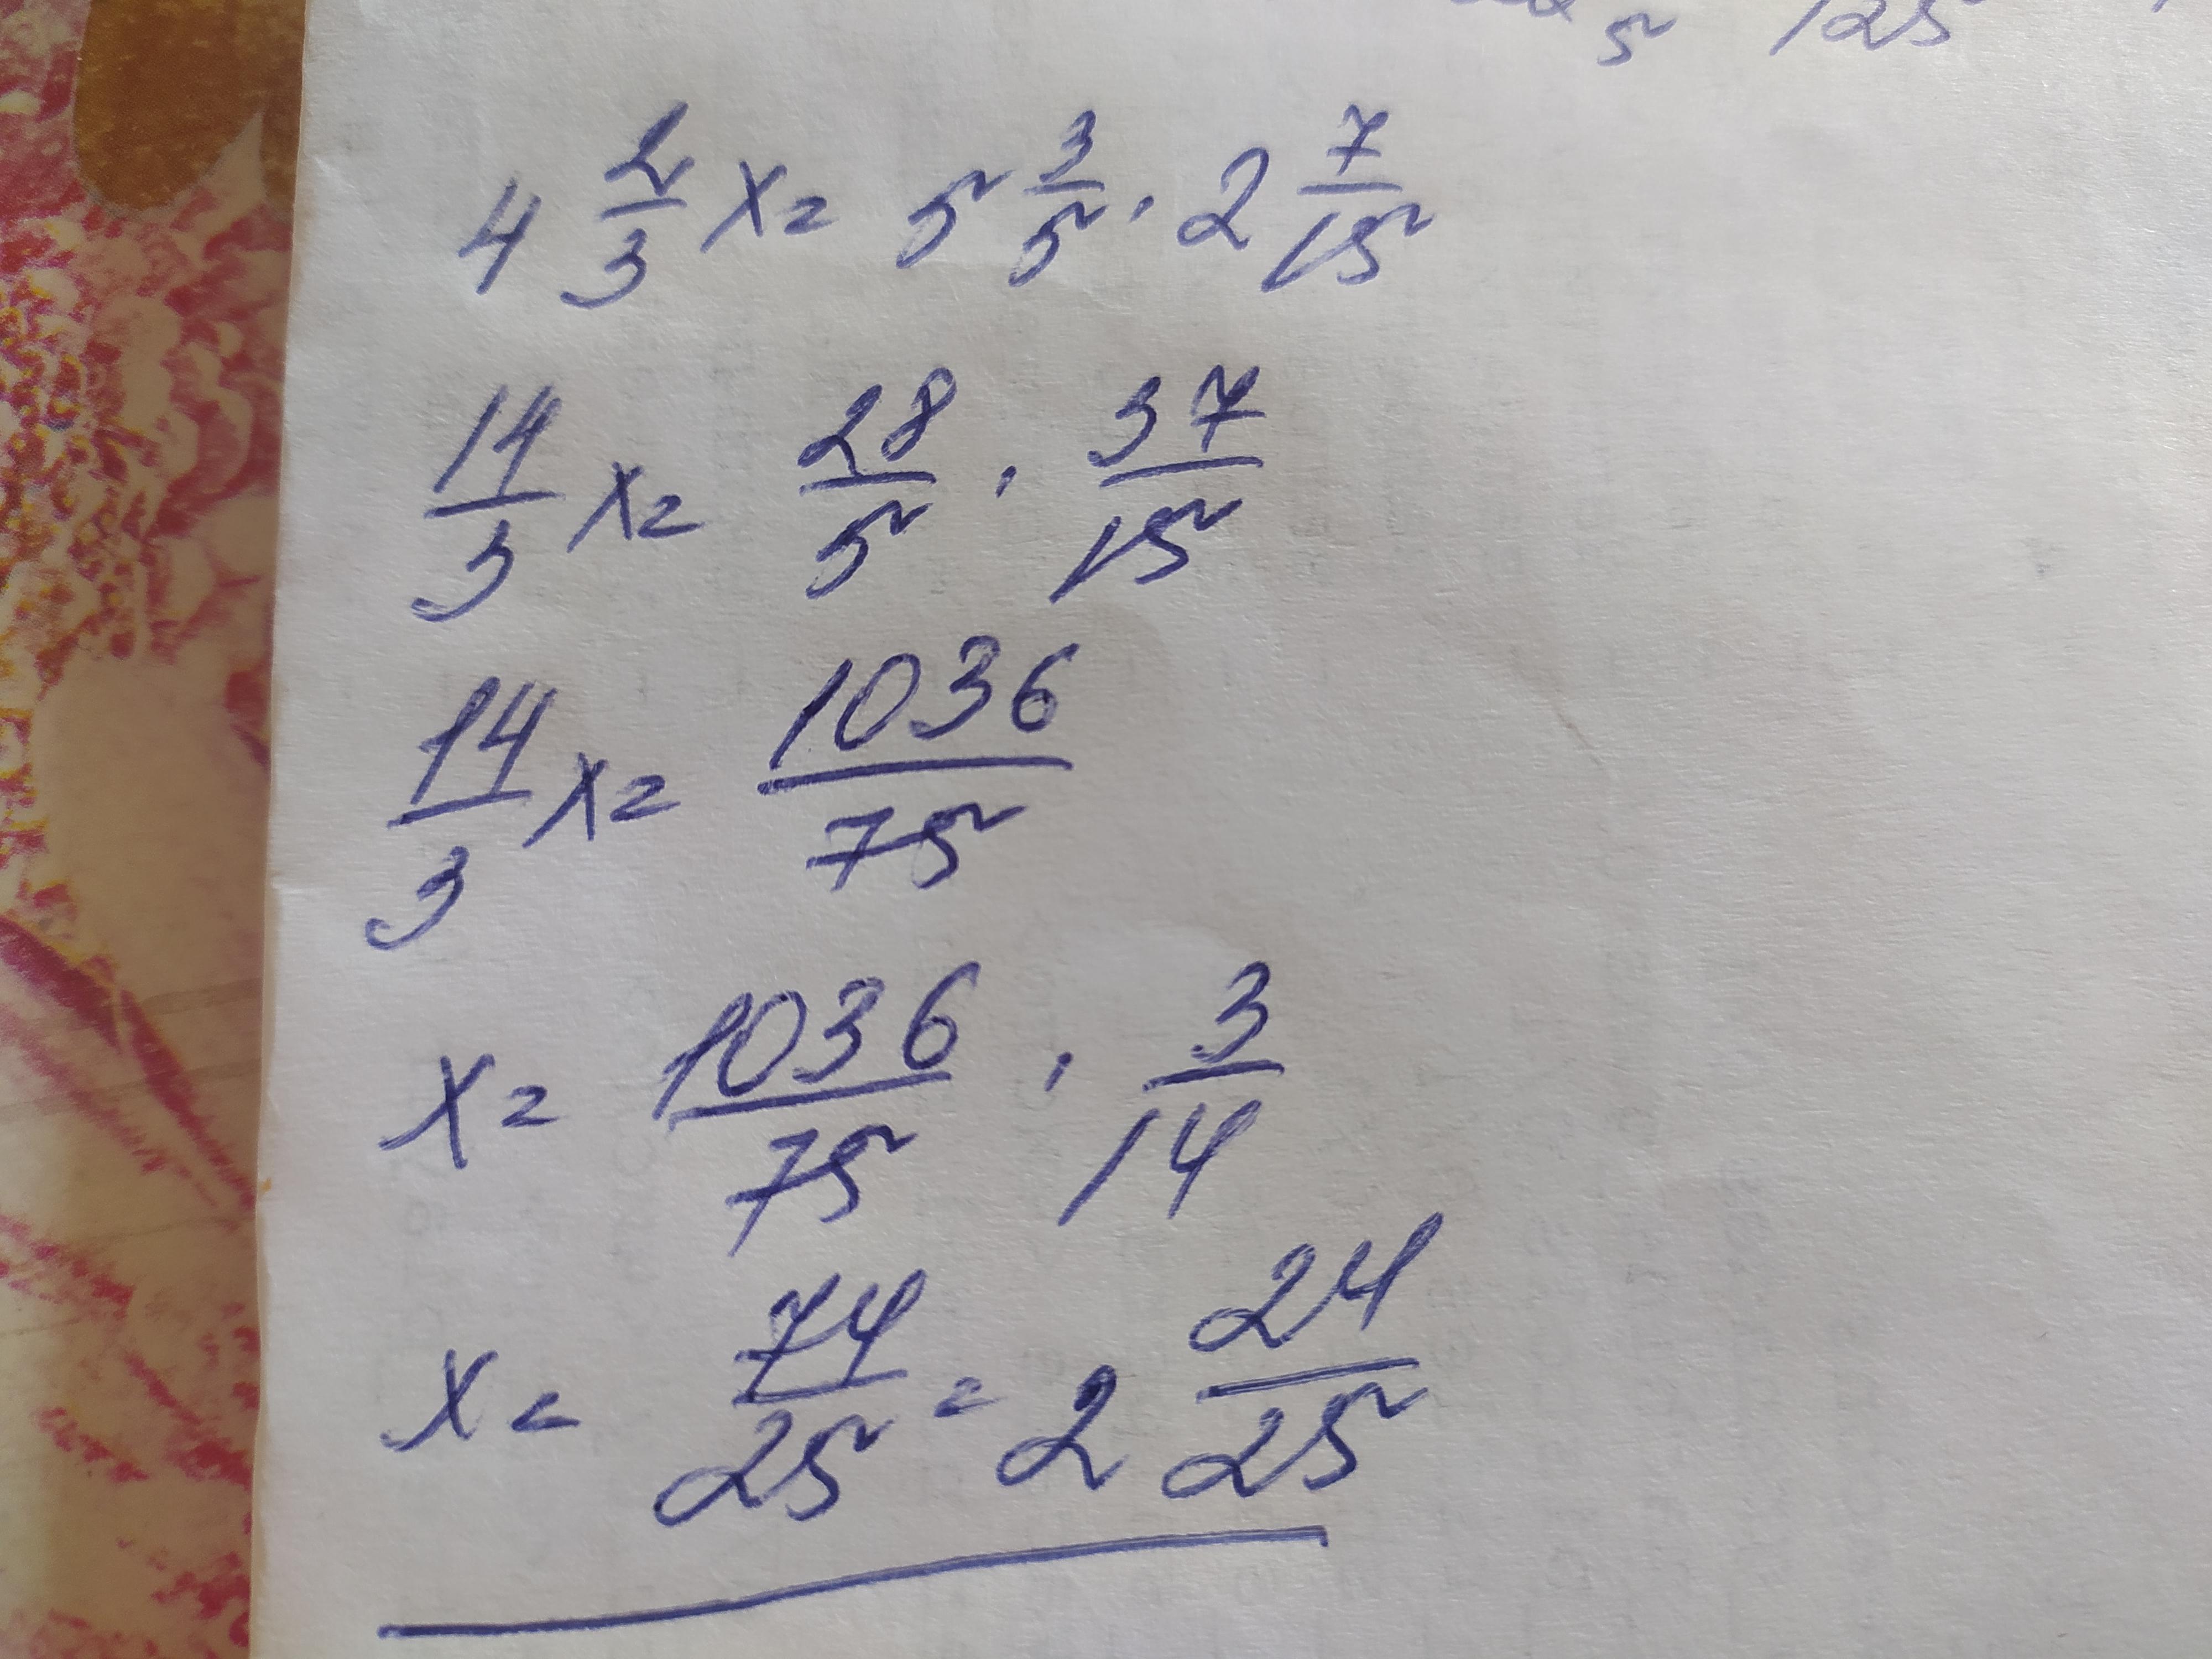 5 125
4 2/3 x = 5 3/5 · 2 7/15
14/3 x = 28/5 · 37/15
14/3 x = 1036/75
x = 1036/75 · 3/14
x = 74/25 = 2 24/25